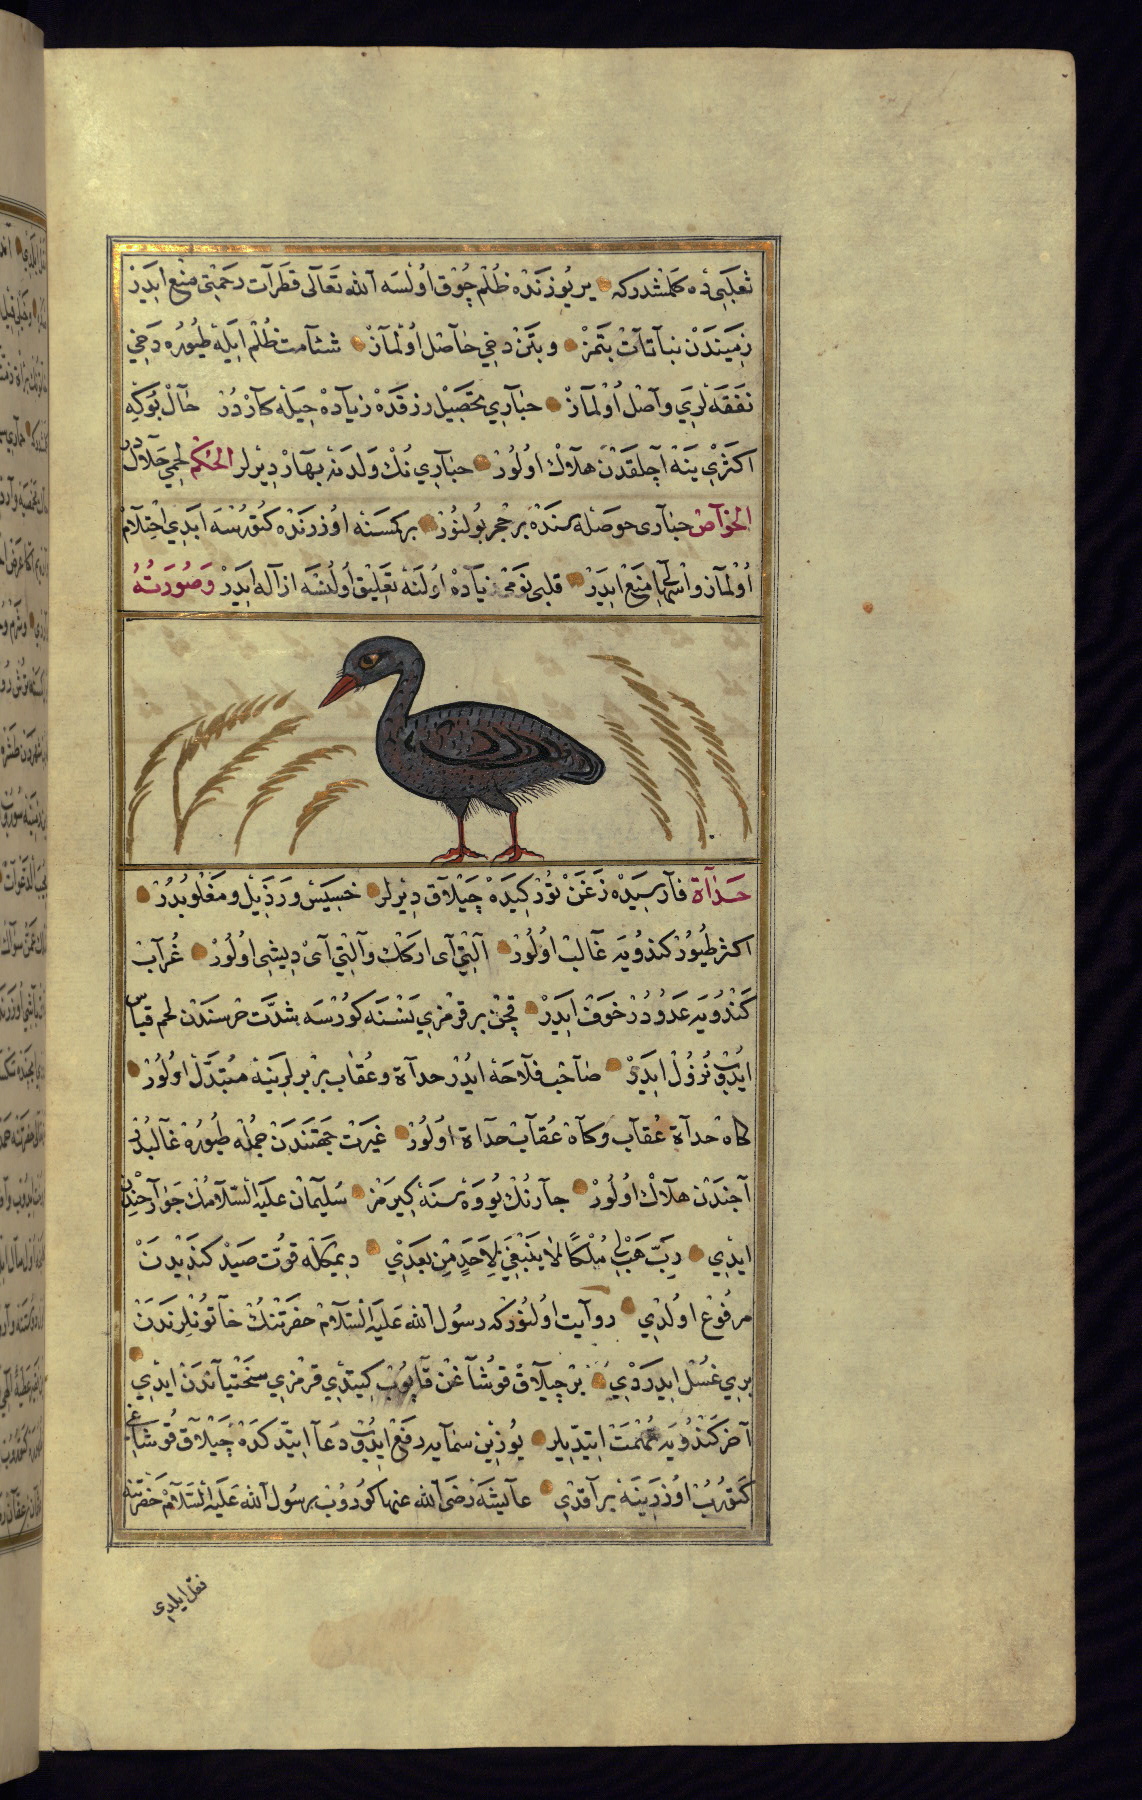 ثعلبیده کلمشدرکه یر یوزنده ظلم چوق اولسه الله تعالی قطرات رحمتی منع ایدر
زمیندن نباتات بتمز وبتن دخی حاصل اولماز شئامت ظلم ایله طیوره دخی
نفقه لری واصل اولماز حباری تحصیل رزقده زیاده حیله کاردر حال بوکه
اکثری ینه آچلقدن هلاک اولور حبارینک ولدنه نهار دیرلر الحکم لحمی حلالدر
الخواص حباری حوصله سنده بر حجر بولنور بر کمسنه اوزرنده کتورسه ابدی احتلام
اولماز واسهالی منع ایدر قلبی نومی زیاده اولنه تعلیق اولنسه ازاله ایدر وصورته
حدأة فارسیده زغن تورکیده چیلاق دیرلر خسیس ورذیل ومغلوبدر
اکثر طیور کندویه غالب اولور آلتی آی ارکک وآلتی آی دیشی اولور غراب
کندویه عدودر خوف ایدر قچن بر قرمزی نسنه کورسه شدت حرصندن لحم قیاس
ایدوب نزول ایدر صاحب فلاحه ایدر حدأة وعقاب بر برلرینه مبتدل اولور
کاه حدأة عقاب وکاه عقاب حدأة اولور غیرت جهتندن جمله طیوره غالبدر
آجندن هلاک اولور جارنک یووه سنه کیرمز سلیمان علیه السلامک جوارحندن
ایدی رب هب لی ملکا لا ینبغی لاحد من بعدی دیمکله قوت صید کندیدن
مرفوع اولدی روایت اولنورکه رسول الله علیه السلام حضرتنک خاتونلرندن
بری غسل ایدردی بر چیلاق قوشاغن قاپوب کیتدی قرمزی سختیاندن ایدی
آخر کندویه تهمت ایتدیلر یوزین سمایه رفع ایدوب دعا ایتدکده چیلاق قوشاغی
کتوروب اوزرینه براقدی عایشه رضی الله عنها کوروب رسول الله علیه السلام حضرتنه
نقل ایلدی